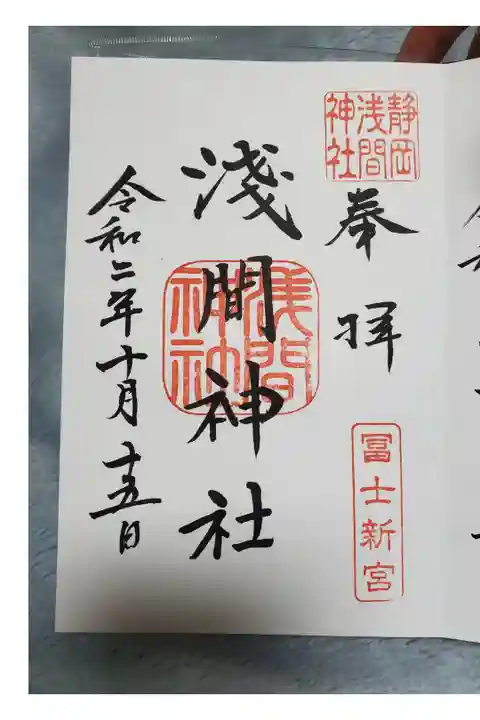 静岡
浅間
神社
奉拝
冨士新宮
淺間神社
浅間
神社
令和二年十月十五日